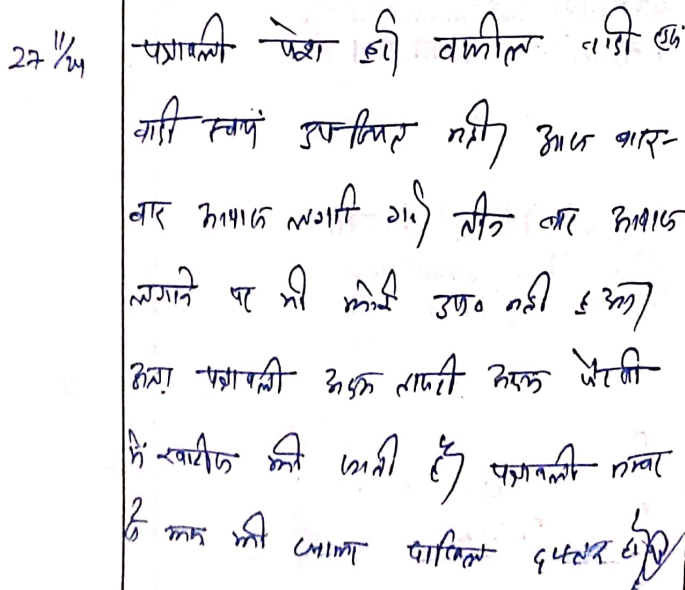 27 11/24 पत्रावली पेश हुई। वकील वादी एवं
वादी स्वयं उपस्थित नहीं। आज बार-
बार आवाज लगायी गई। तीन बार आवाज
लगाने पर भी कोई उप० नहीं हुआ।
अतः पत्रावली अदम हाजरी अदम पैरवी
में खारीज की जाती है। पत्रावली नम्बर
से कम की जाकर दाखिल दफ्तर हो।